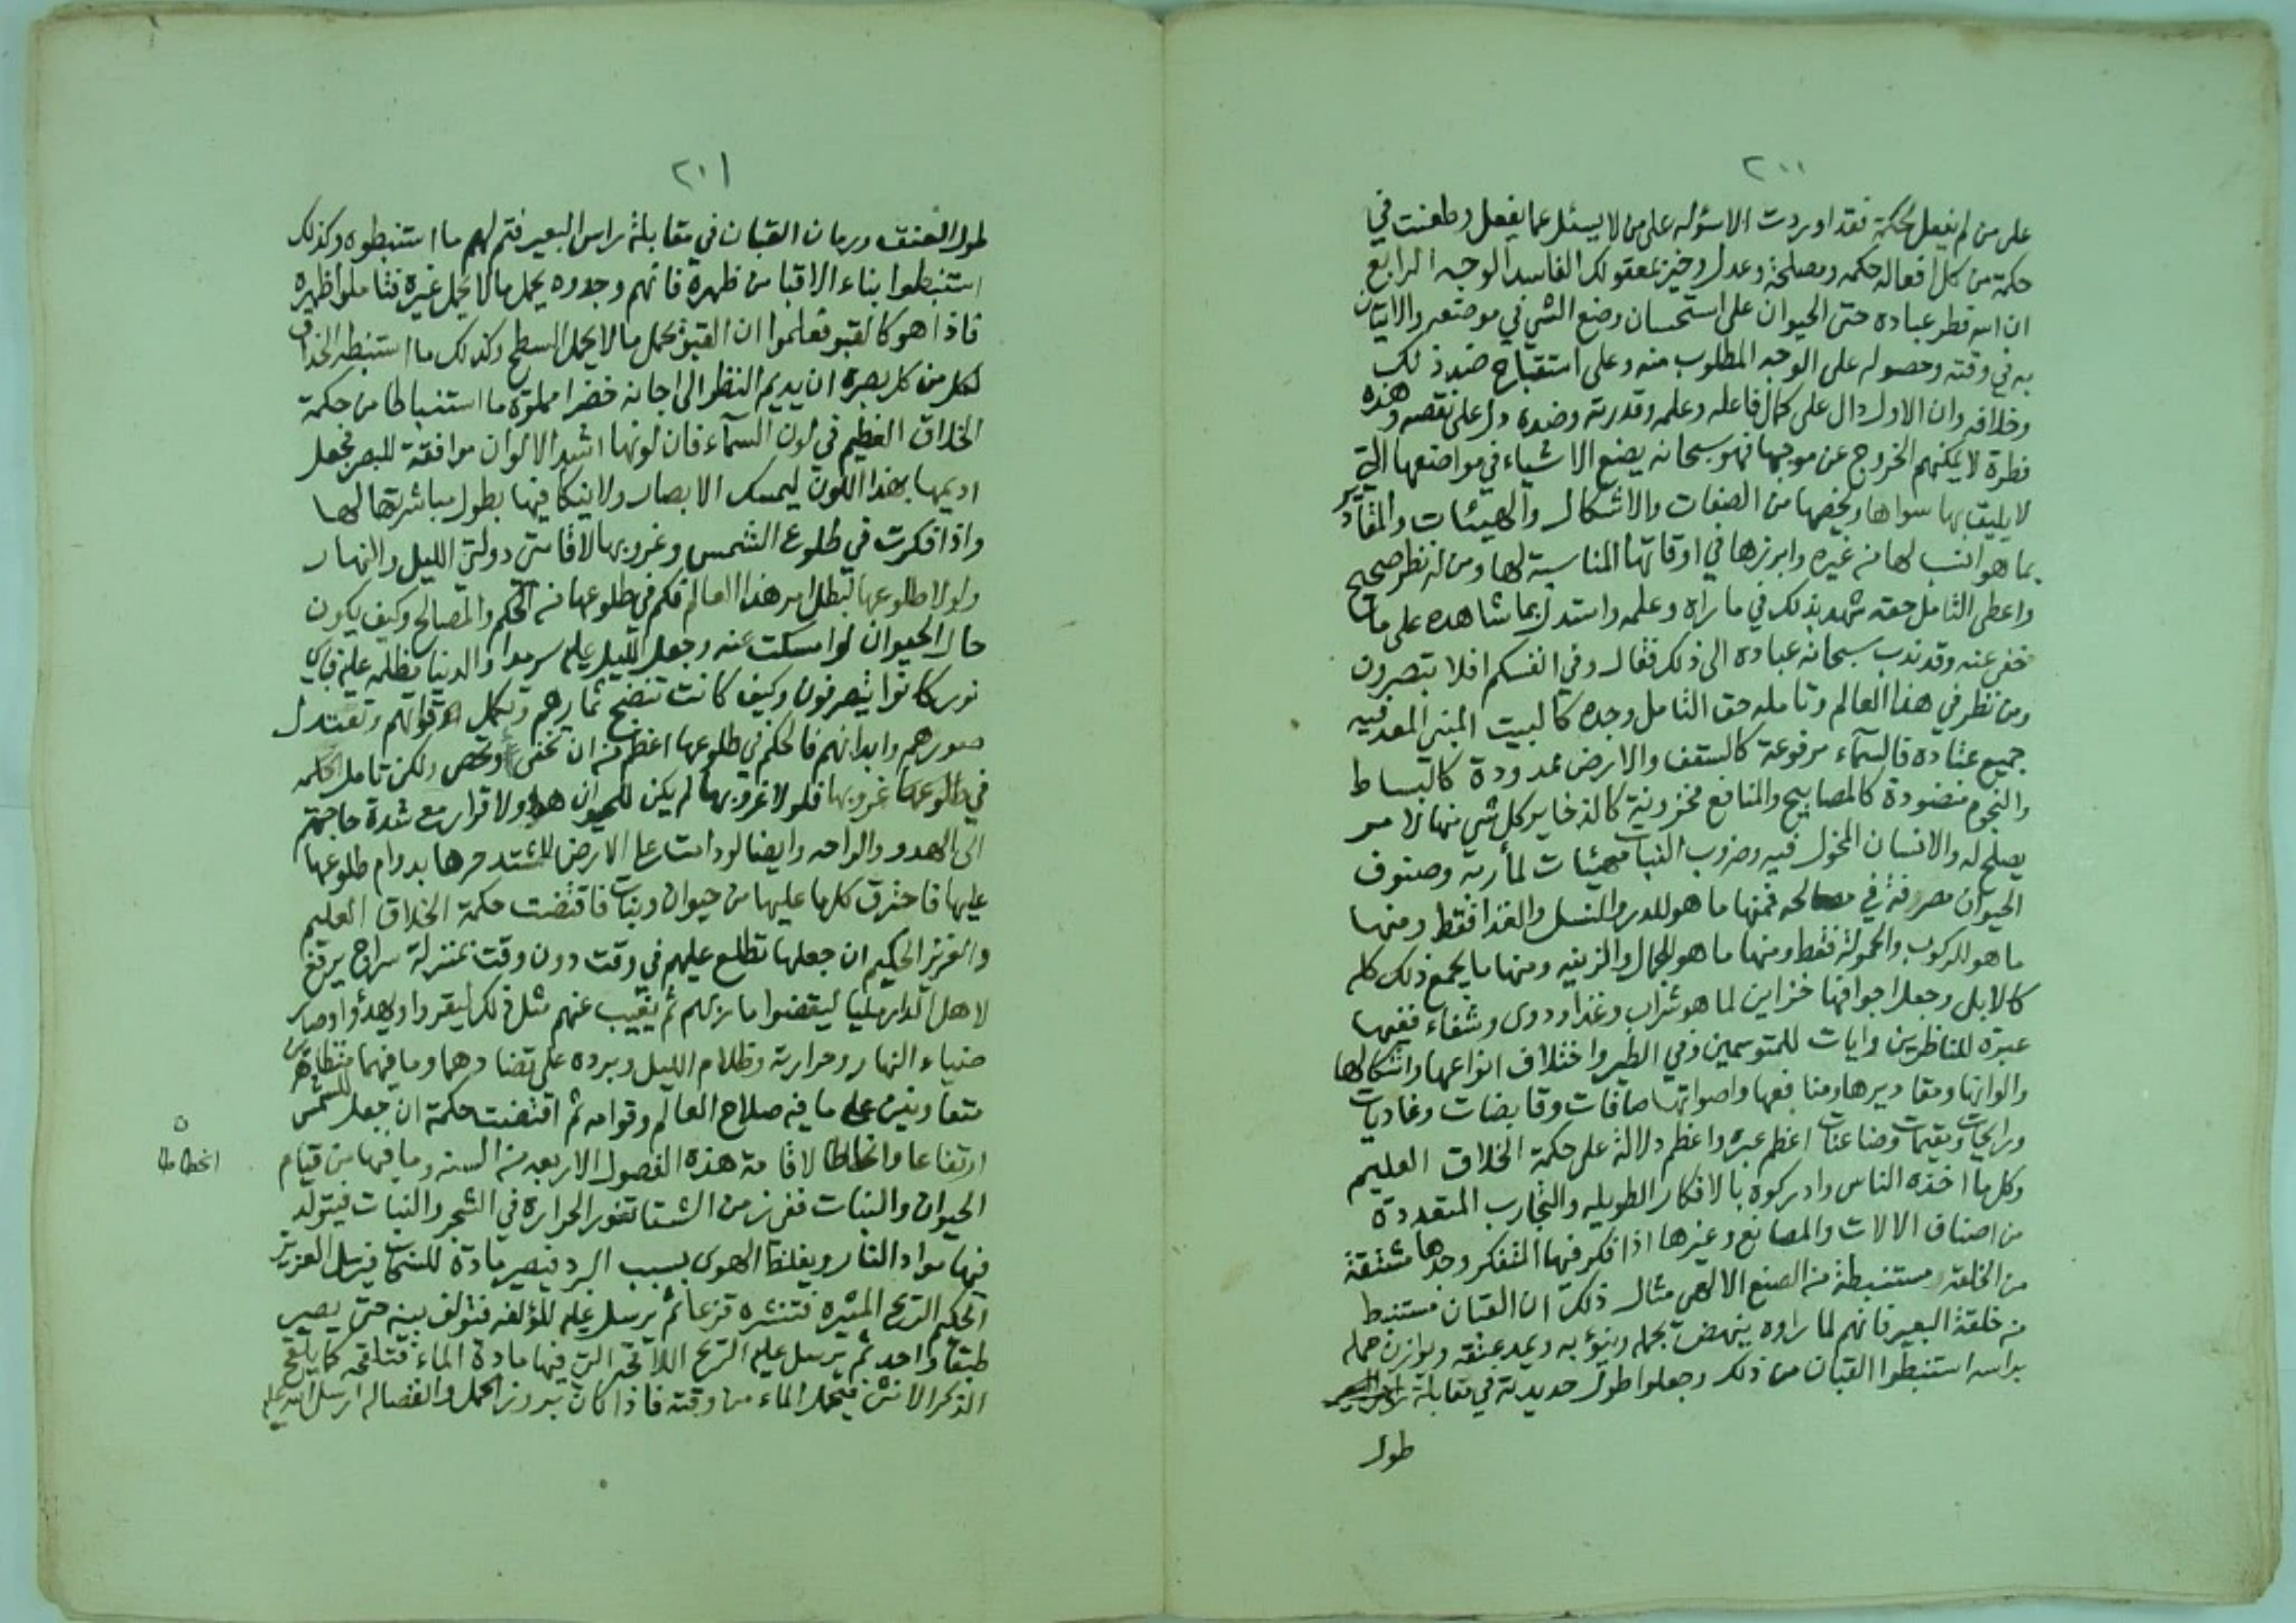 ٢٠٠
على من لم يفعل لحكمة فقد اوردت الاسئوله على من لا يسئل عما يفعل وطعنت في
حكمة من كل افعاله حكمه ومصلحة وعدل وخير بمعقولك الفاسد الوجه الرابع
ان الله فطر عباده حتى الحيوان على استحسان وضع الشي في موضعه والاتيان
به في وقته وحصوله على الوجه المطلوب منه وعلى استقباح ضد ذلك
وخلافه وان الاول دال على كمال فاعله وعلمه وقدرته وضده دل على نقصه وهذه
فطرة لا يمكنهم الخروج عن موجبها فهو سبحانه يضع الاشياء في مواضعها التي
لا يليق بها سواها ويخصها من الصفات والاشكال والهيئات والمقادير
بما هو انسب لها من غيره وابرزها في اوقاتها المناسبة لها ومن له نظر صحيح
واعطى التامل حقه شهد بذلك في ما راه وعلمه واستدل بما شاهده على ما
خفى عنه وقد ندب سبحانه عباده الى ذلك فقال وفي انفسكم افلا تبصرون
ومن نظر في هذا العالم وتامله حق التامل وجده كالبيت المبني المعد فيه
جميع عتاده فالسمآء مرفوعة كالسقف والارض ممدودة كالبساط
والنجوم منضودة كالمصابيح والمنافع مخزونة كالذخاير كل شي منها لامر
يصلح له والانسان المخول فيه وضروب النبات مهيئات لمأربه وصنوف
الحيوان مصرفة في مصالحه فمنها ما هو للدر والنسل والغذا فقط ومنها
ما هو للركوب والحمولة فقط ومنها ما هو للجمال والزينه ومنها ما يجمع ذلك كله
كالابل وجعل اجوافها خزاين لما هو شراب وغذا ودوى وشفاء ففيها
عبرة للناظرين وايات للمتوسمين وفي الطير واختلاف انواعها واشكالها
والوانها ومقاديرها ومنافعها واصواتها صافات وقابضات وغاديات
ورايحات ومقيمات وضاعنات اعظم عبره واعظم دلالة على حكمة الخلاق العليم
وكل ما اخذه الناس وادركوه بالافكار الطويله والتجارب المتعددة
من اصناف الالات والمصانع وغيرها اذا فكر فيها المتفكر وجدها مشتقة
من الخلقه مستنبطة من الصنع الالهي مثال ذلك ان القبان مستنبط
من خلقة البعير فانهم لما راوه ينهض بحمله وينؤ به ويمد عنقه ويوازن حمله
براسه استنبطوا القبان من ذلك وجعلوا طول حديدته في مقابلة
طول
٢٠١
طول العنق ورمان القبان في مقابلة راس البعير فتم لهم ما استنبطوه وكذلك
استنبطوا بناء الاقبا من ظهره فانهم وجدوه يحمل مالا يحمل غيره فتاملوا ظهره
فاذا هو كالقبو فعلموا ان القبو يحمل مالا يحمل السطح وكذلك ما استنبطه الحذاق
لكل من كل بصره ان يديم النظر الى اجانه خضرا مملوة ما استنباطا من حكمة
الخلاق العظيم في لون السمآء فان لونها اشد الالوان موافقة للبصر فجعل
اديمها بهذا اللون ليمسك الابصار ولا ينكا فيها بطول مباشرتها لها
واذا فكرت في طلوع الشمس وغروبها لاقامة دولتي الليل والنهار
ولولا طلوعها لبطل امر هذا العالم فكم في طلوعها من الحكم والمصالح وكيف يكون
حال الحيوان لو امسكت عنه وجعل الليل عليه سرمدا والدنيا مظلمه عليه فباي
نور كانوا يتصرفون وكيف كانت تنضج ثمارهم وتكمل اقواتهم وتعتدل
صورهم وابدانهم فالحكم في طلوعها اعظم من ان تخفى وتحصى ولكن تامل الحكمه
في غروبها فلولا غروبها لم يكن للحيوان هدو ولا قرار مع شدة حاجتهم
الى الهدو والراحه وايضا لو دامت على الارض لاشتد حرها بدوام طلوعها
عليها فاحترق كلما عليها من حيوان ونبات فاقتضت حكمة الخلاق العليم
والعزيز الحكيم ان جعلها تطلع عليهم في وقت دون وقت بمنزلة سراج يرفع
لاهل الدار مليا ليقضوا مأربهم ثم يغيب عنهم مثل ذلك ليقروا ويهدؤا وصار
ضياء النهار وحرارته وظلام الليل وبرده على تضادهما وما فيهما متظاهرين
متعاونين على ما فيه صلاح العالم وقوامه ثم اقتضت حكمة ان جعل للشمس
ارتفاعا وانحطاطا لاقامة هذه الفصول الاربعه من السنه وما فيها من قيام
انحطاطا
الحيوان والنبات ففي زمن الشتا تغور الحرارة في الشجر والنبات فيتولد
فيها مواد النار ويغلظ الهوى بسبب البرد فيصير مادة للسحاب فيرسل العزيز
الحكيم الريح المثيره فتنشره قزعا ثم يرسل عليه المؤلفه فتؤلف بينه حتى يصير
طبقا واحد ثم يرسل عليه الريح اللاقحه التي فيها مادة الماء فتلقحه كما يلقح
الذكر الانثى فيحمل الماء من وقته فاذا كان بروز الحمل وانفصاله ارسل الله عليه